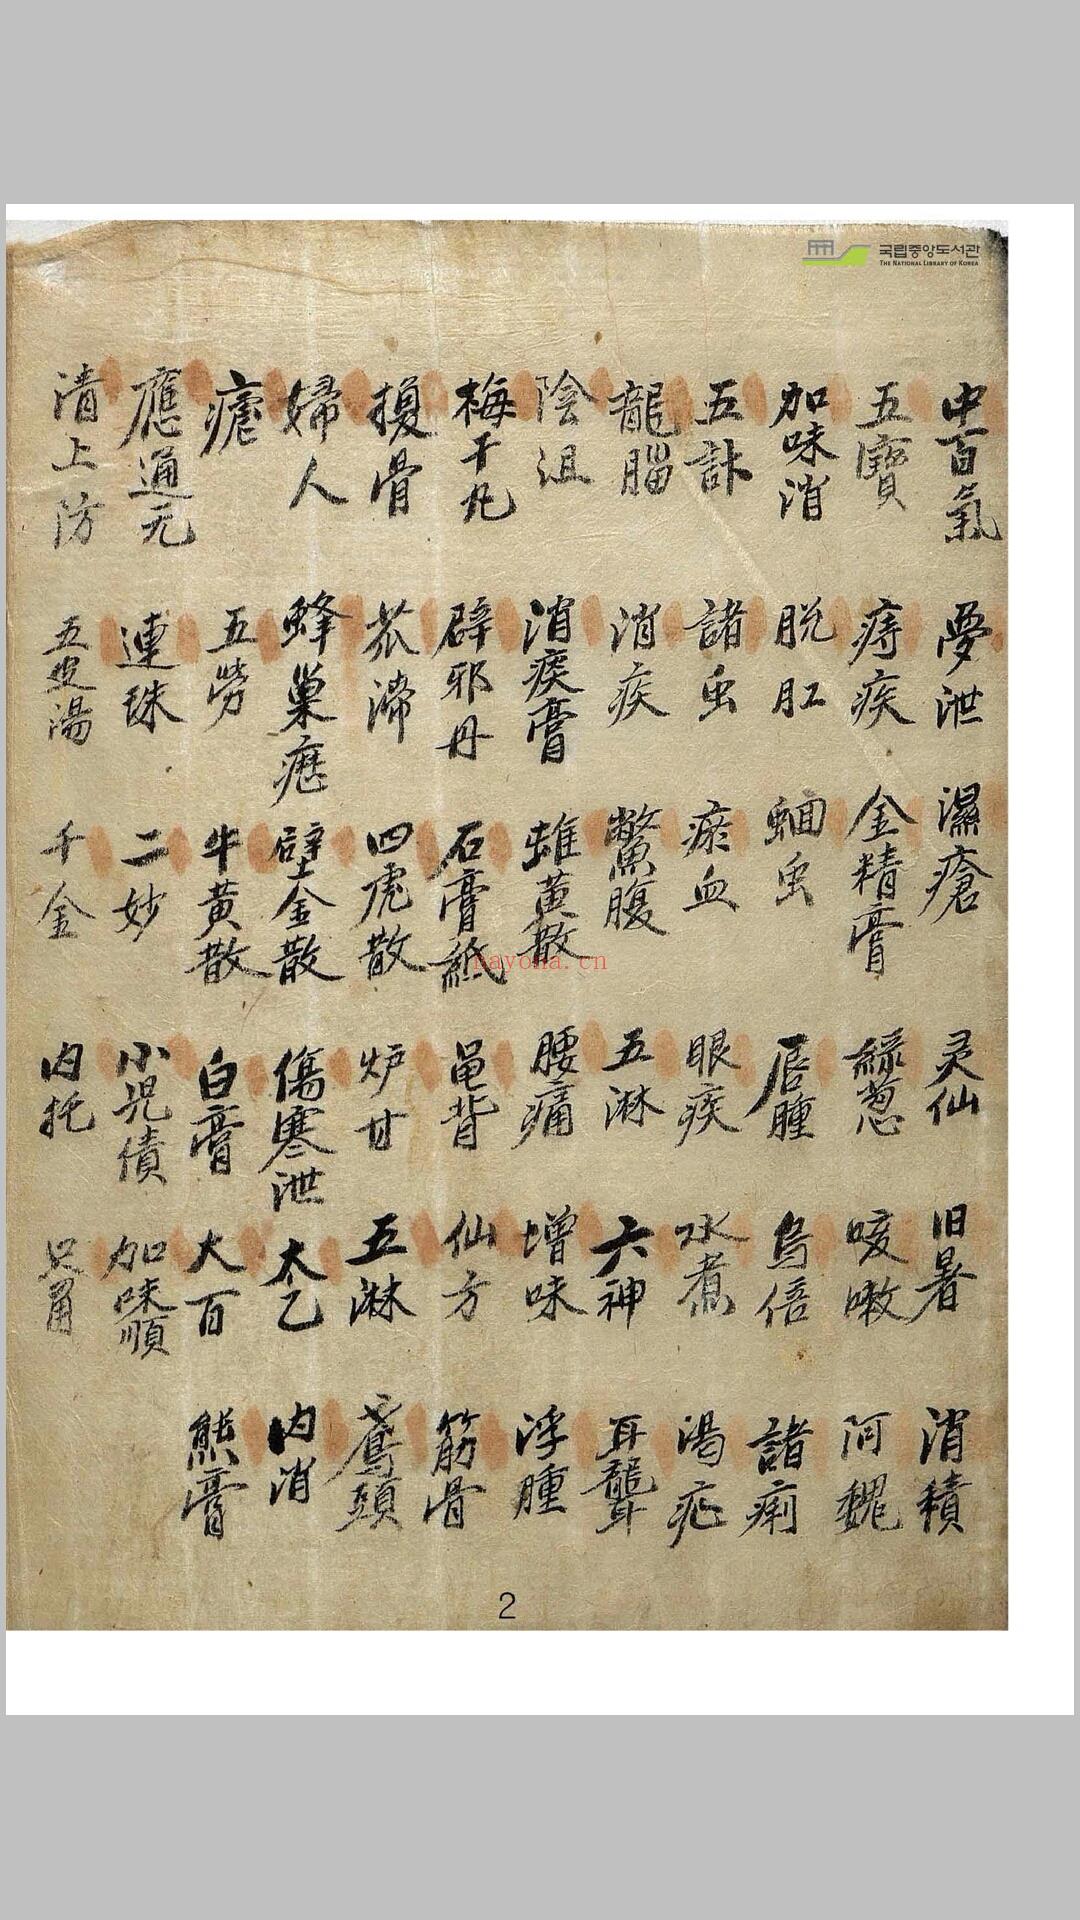 국립중앙도서관
THE NATIONAL LIBRARY OF KOREA
中百氣 夢泄 濕瘡 灵仙 旧暑 消積
五寶 痔疾 金精膏 綠葱 咳嗽 阿魏
加味消 脫肛 蛔虫 唇腫 烏倍 諸痢
五卦 諸虫 瘀血 眼疾 水煮 渴
龍腦 消疾 鱉腹 五淋 六神 耳聾
陰沮 消膏 雄黄散 腰痛 增味 浮腫
梅干丸 辟邪丹 石膏紙 背 仙方 筋骨
換骨 滯 四虎散 炉甘 五淋 頭
婦人 蜂巢 壁金散 傷寒泄 太乙 内消
瘧 五勞 牛黄散 白膏 大百 熊膏
應通元 連珠 二妙 小児債 加味順
清上防 五皮湯 千金 内托 只角
nayona.cn
2